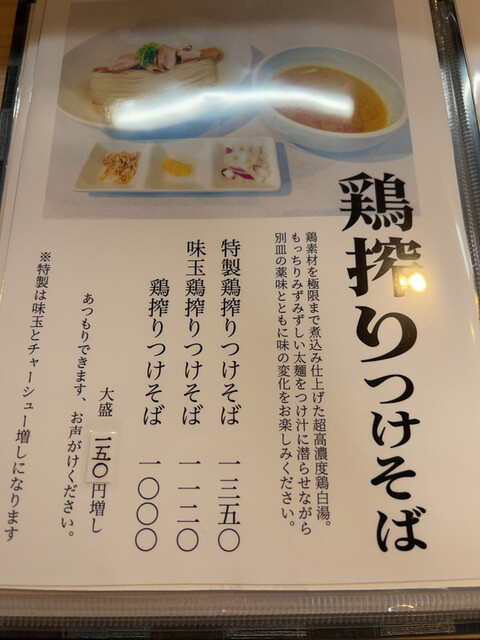 鶏搾りつけそば
鶏素材を極限まで煮込み仕上げた超高濃度鶏白湯。
もっちりみずみずしい太麺をつけ汁に潜らせながら
別皿の薬味とともに味の変化をお楽しみください。
特製鶏搾りつけそば 一三五〇
味玉鶏搾りつけそば 一一二〇
鶏搾りつけそば 一〇〇〇
大盛 一五〇円増し
あつもりできます、お声がけください。
※特製は味玉とチャーシュー増しになります